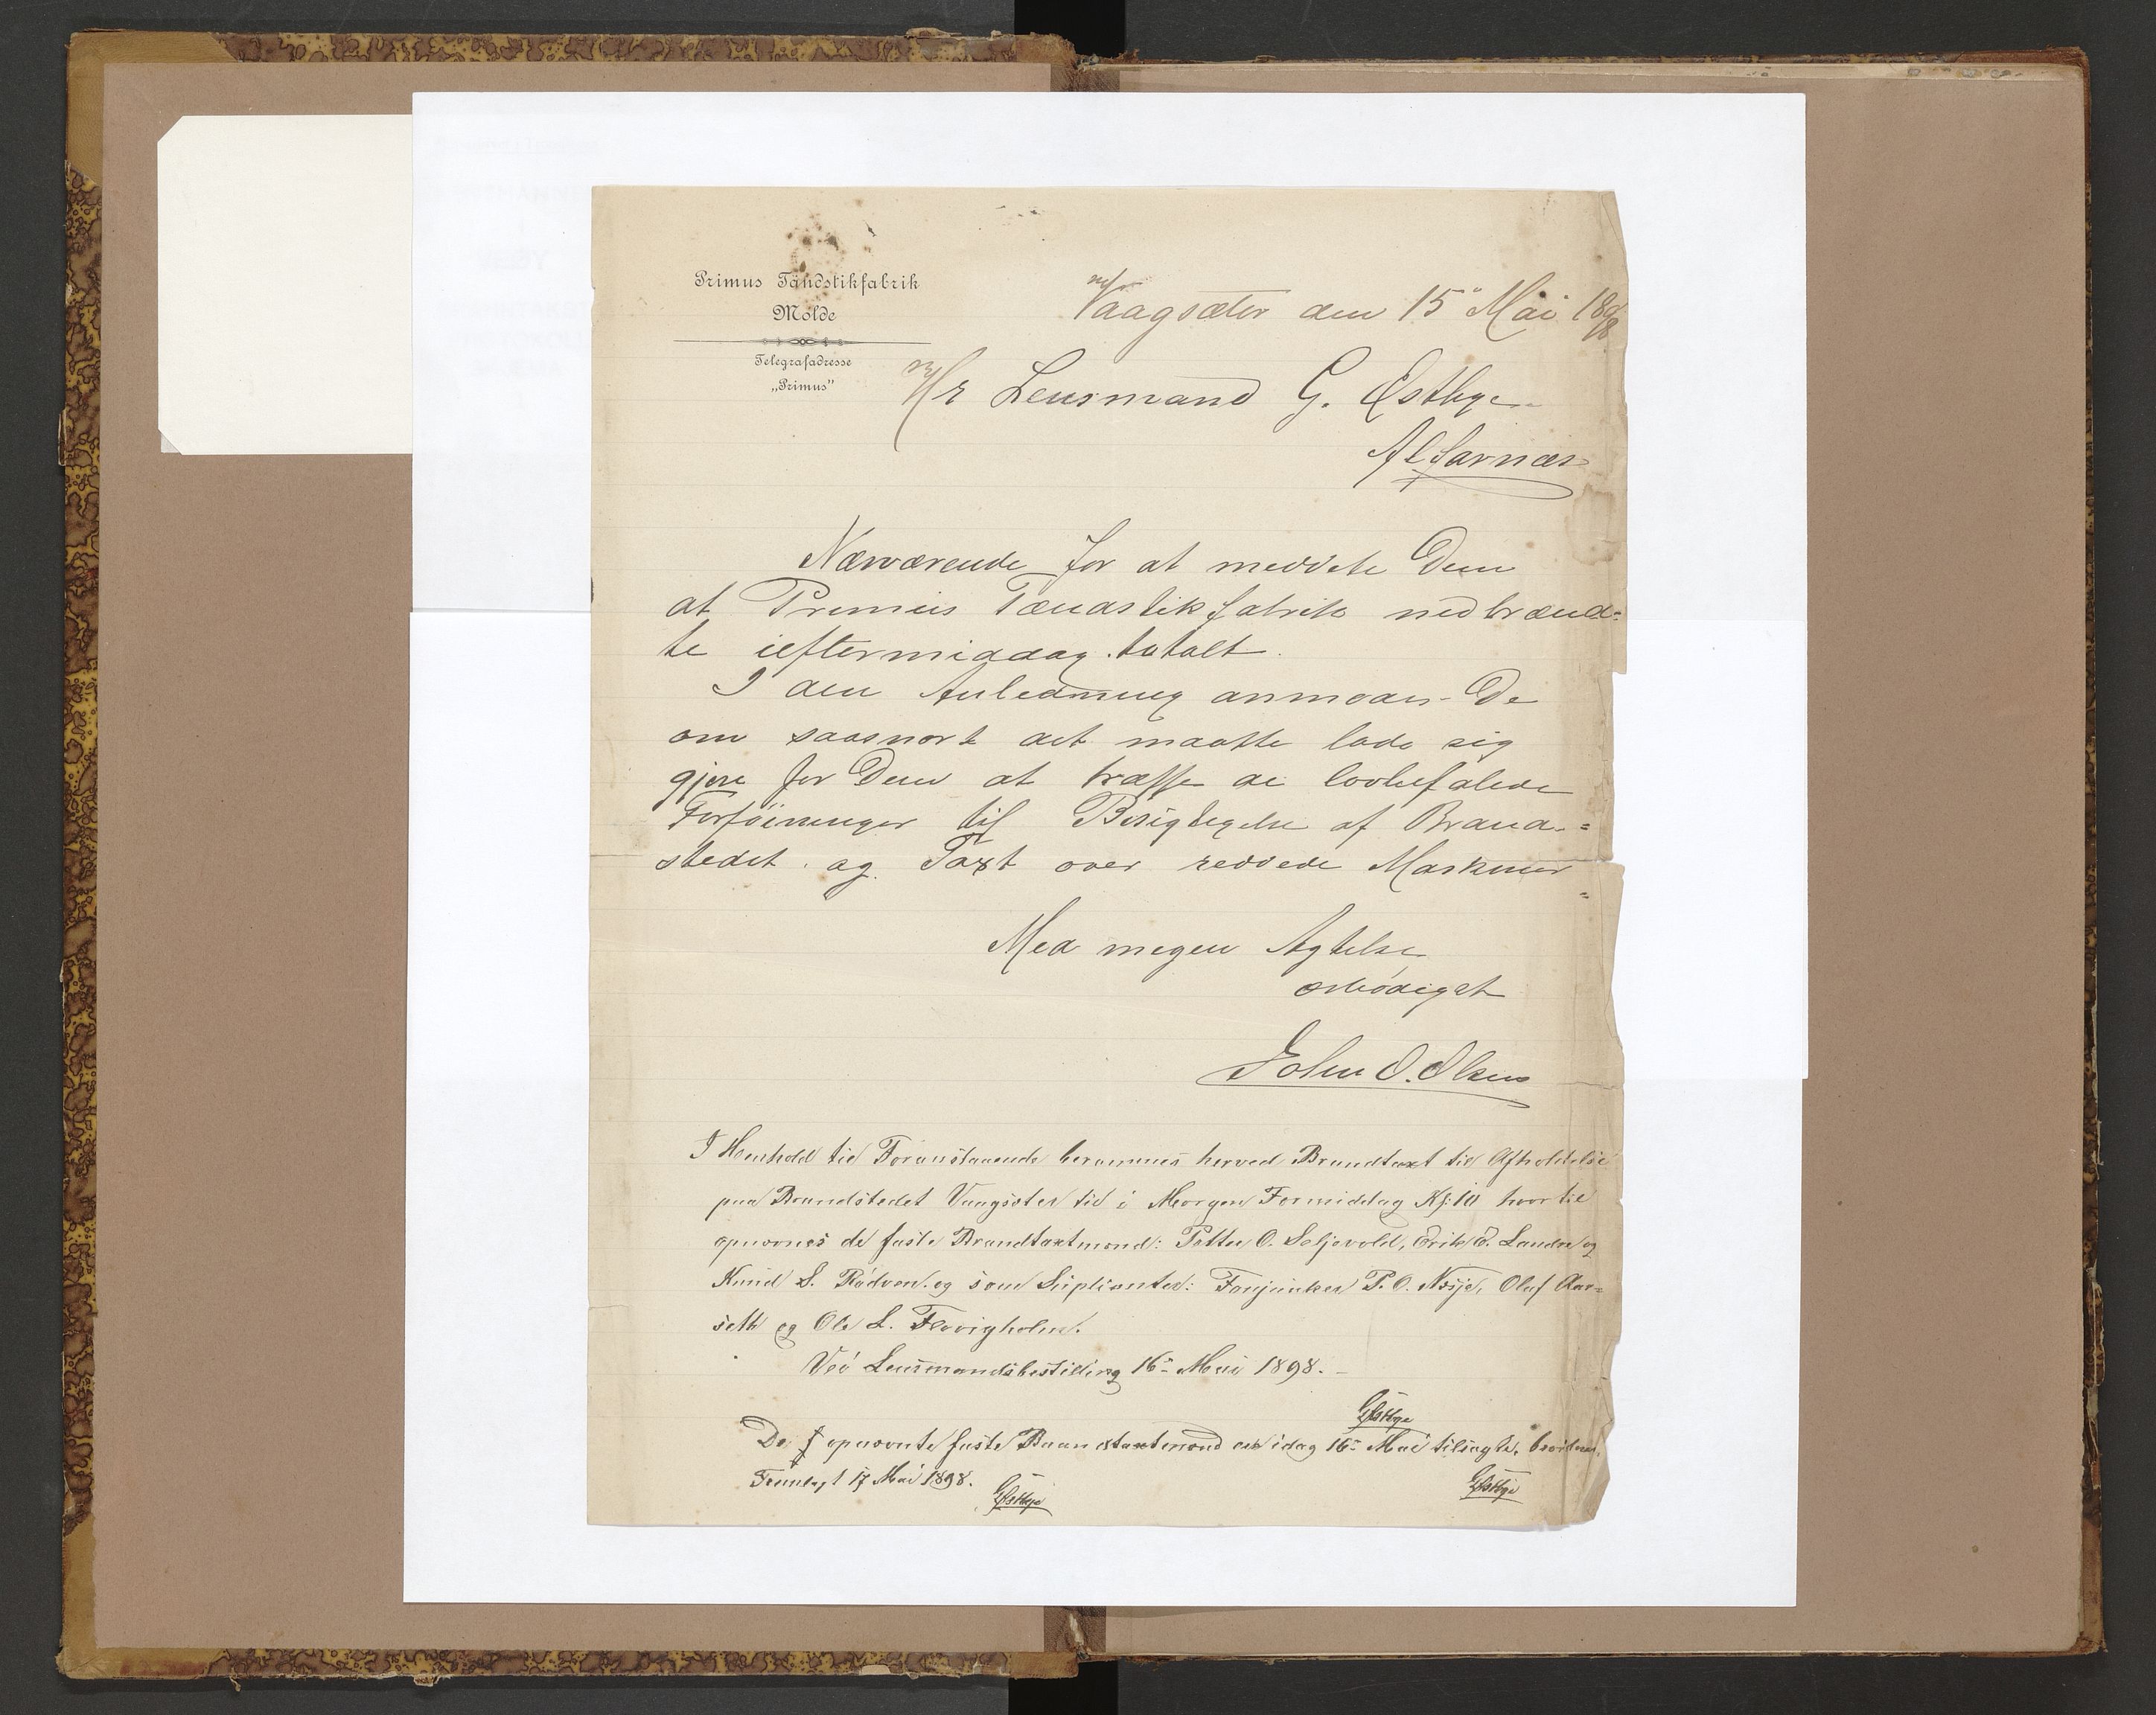 Primus Tändstikfabrik
Molde
Telegrafadresse
„Primus"
Vaagsæter den 15 Mai 1898
Hr Lensmand G. Østbye
Alfarnæs
Nærværende for at meddele Dem
at Primus Tændstikfabrik nedbrænd=
te ieftermiddag totalt.
I den Anledning anmodes De
om saasnart det maatte lade sig
gjøre for Dem at træffe de lovbefalede
Forföininger til Besigtigelse af Brand=
stedet og Taxt over reddede Maskiner
Med megen Agtelse
ærbödigst
John O. Olsen
I Henhold til Foranstaaende berammes herved Brandtaxt til Afholdelse
paa Brandstedet Vaagsæter til i Morgen Formiddag Kl. 10 hvortil
opnævnes de faste Brandtaxtmænd: Petter O. Seljevold, Erik E. Landre og
Knud S. Rödven og som Suplianter: Fanjunker P. O. Nesje, Oluf Aar=
seth og Ole L. Flovigholm.
Veö Lensmandsbestilling 16 Mai 1898.
GØstbye
De opnævnte faste Brandtaxtmænd er idag 16 Mai tilsagte, bevidnes
GØstbye
Fremlagt 17 Mai 1898.
GØstbye